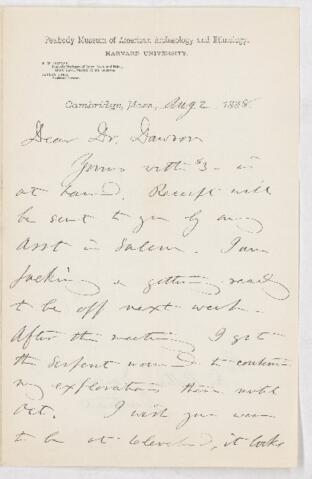 Peabody Museum of American Archaeology and Ethnology,
HARVARD UNIVERSITY.
Cambridge, Mass. Aug 2 1888
Dear Dr. Dawson
Yours with $3 - is
at hand. Receipt will
be sent to you by my
Asst in Salem. I am
packing & getting ready
to be off next week.
After the meeting I go to
the Serpent mound to continue
my exploration there until
Oct. I wish you were
to be at Cleveland, it looks